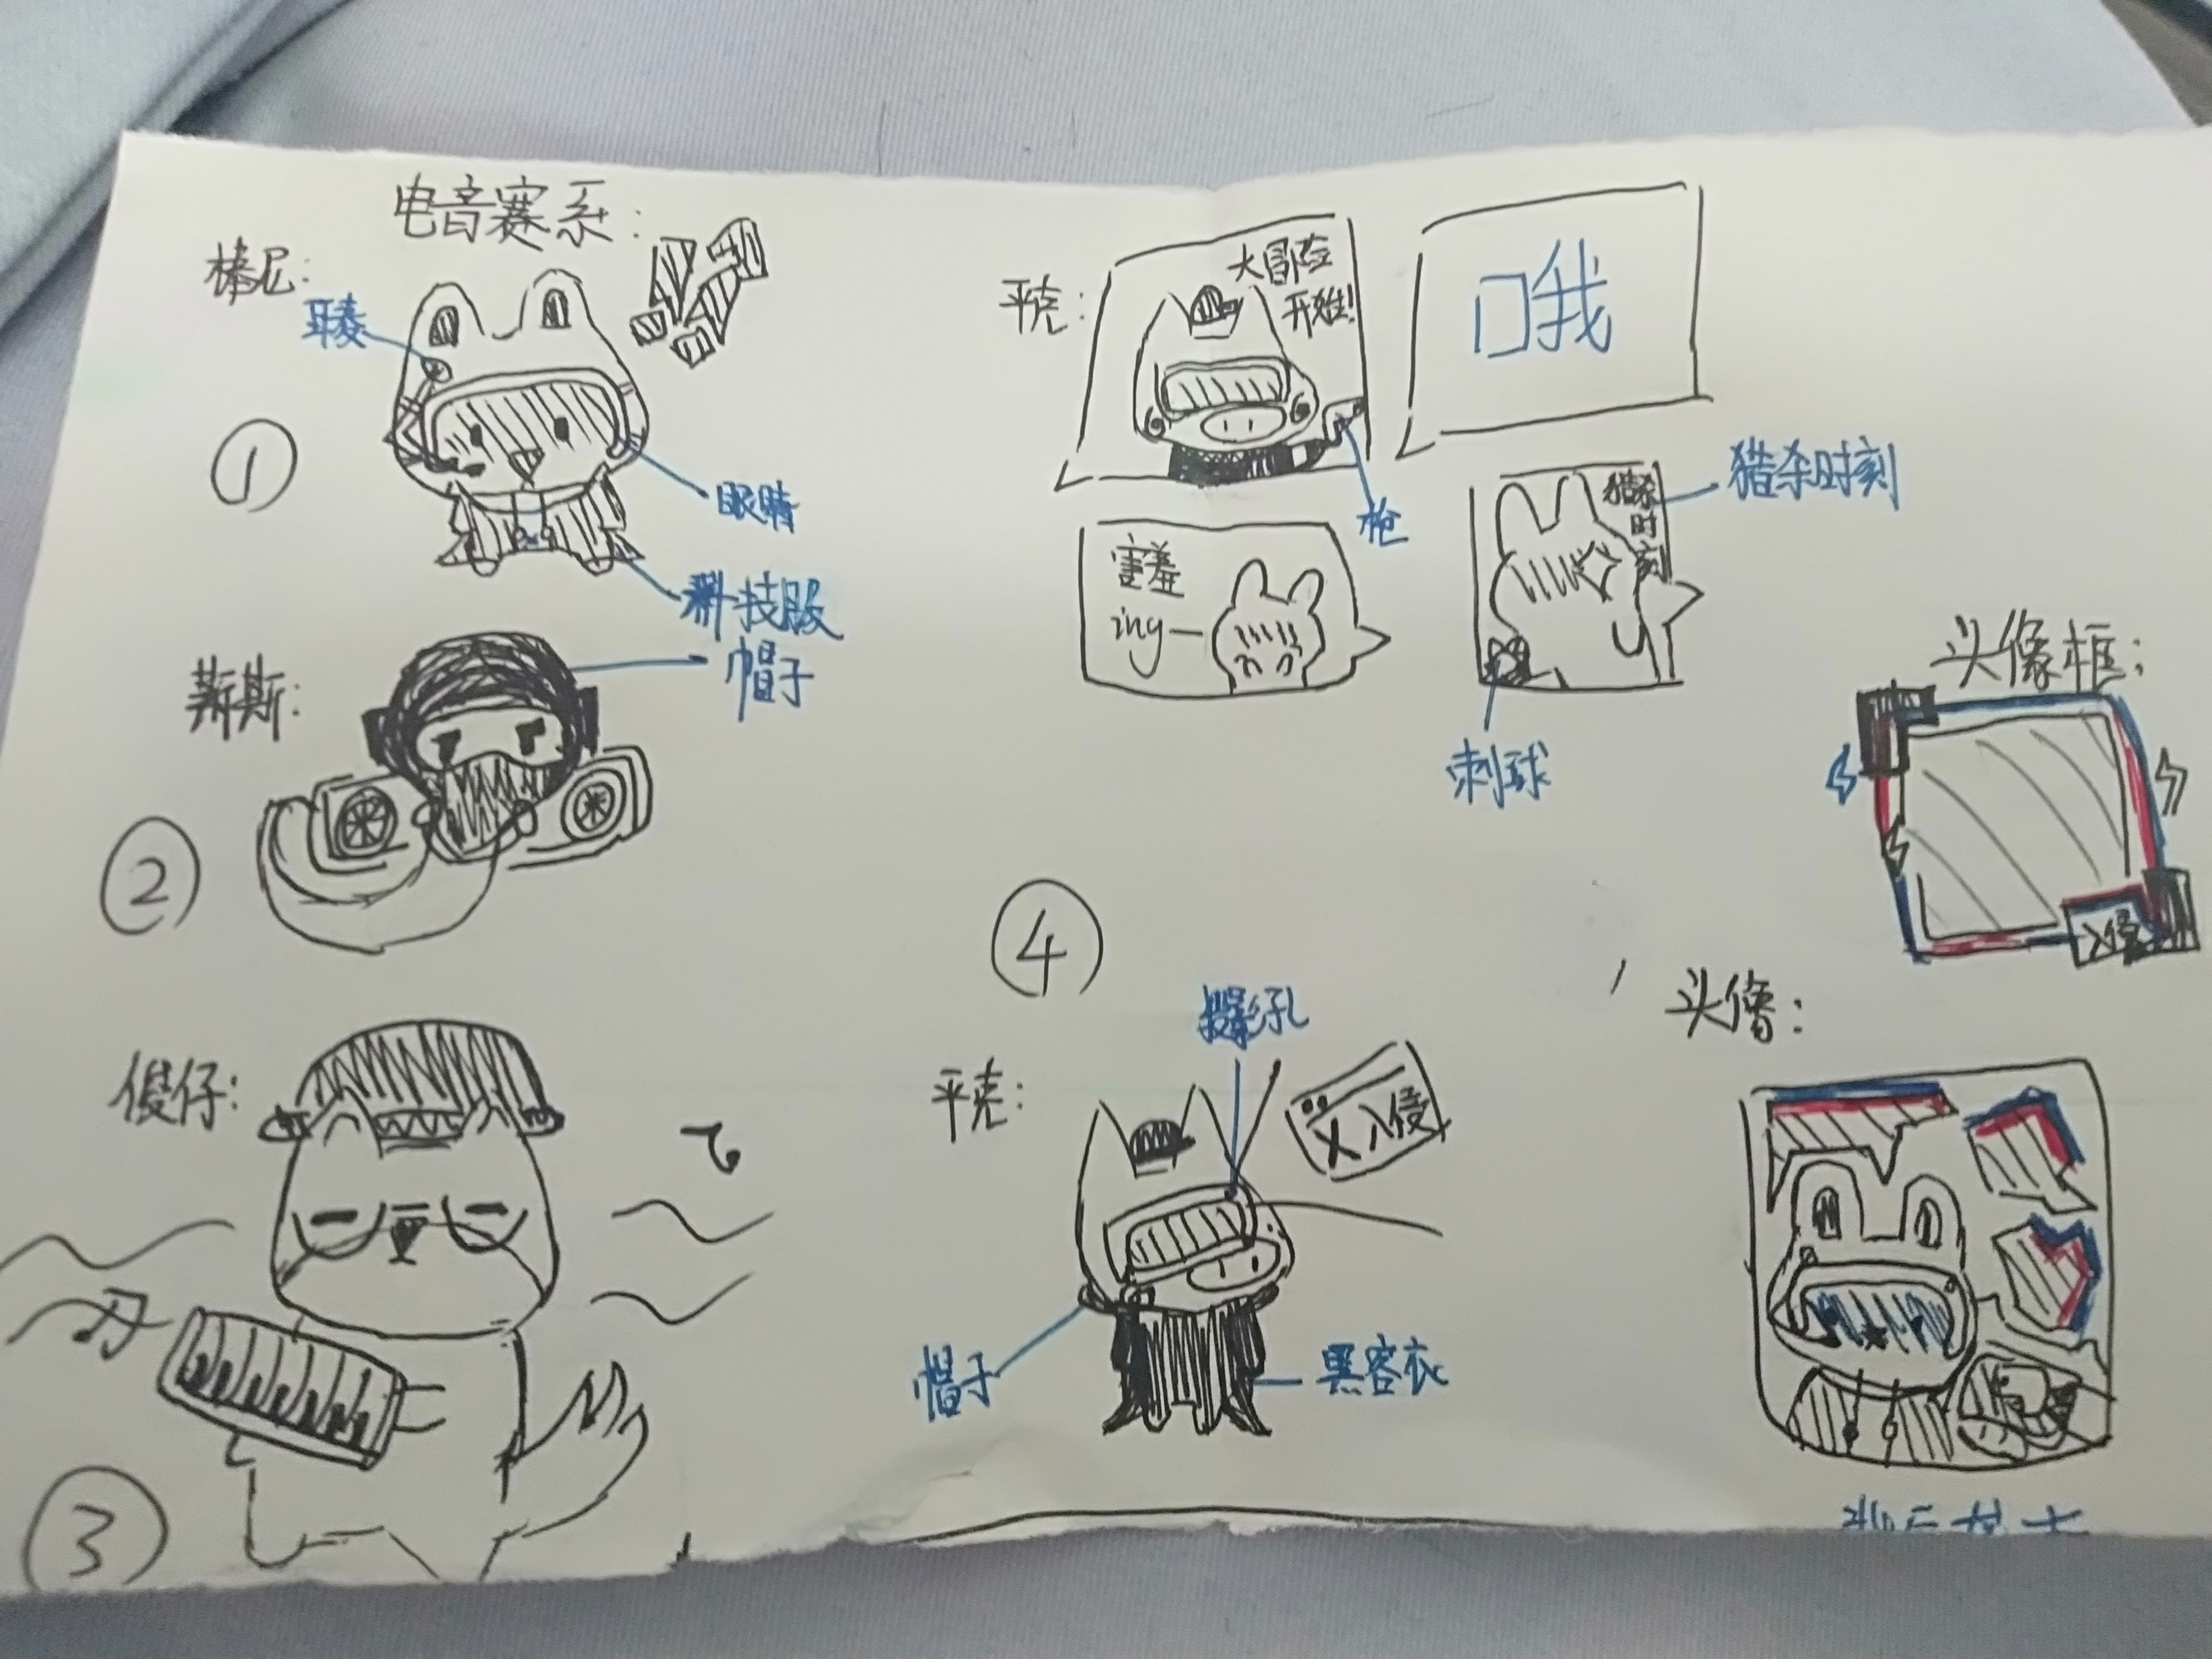 电音赛系:
棒尼:
耳麦
①
眼睛
科技服
斯斯:
帽子
②
傻仔:
③
平壳:
大冒险
开始!
口哦
枪
害羞
ing—
猎杀
时
刻
猎杀时刻
刺球
④
投影孔
平壳:
X入侵
帽子
黑客衣
头像框:
入侵
头像: